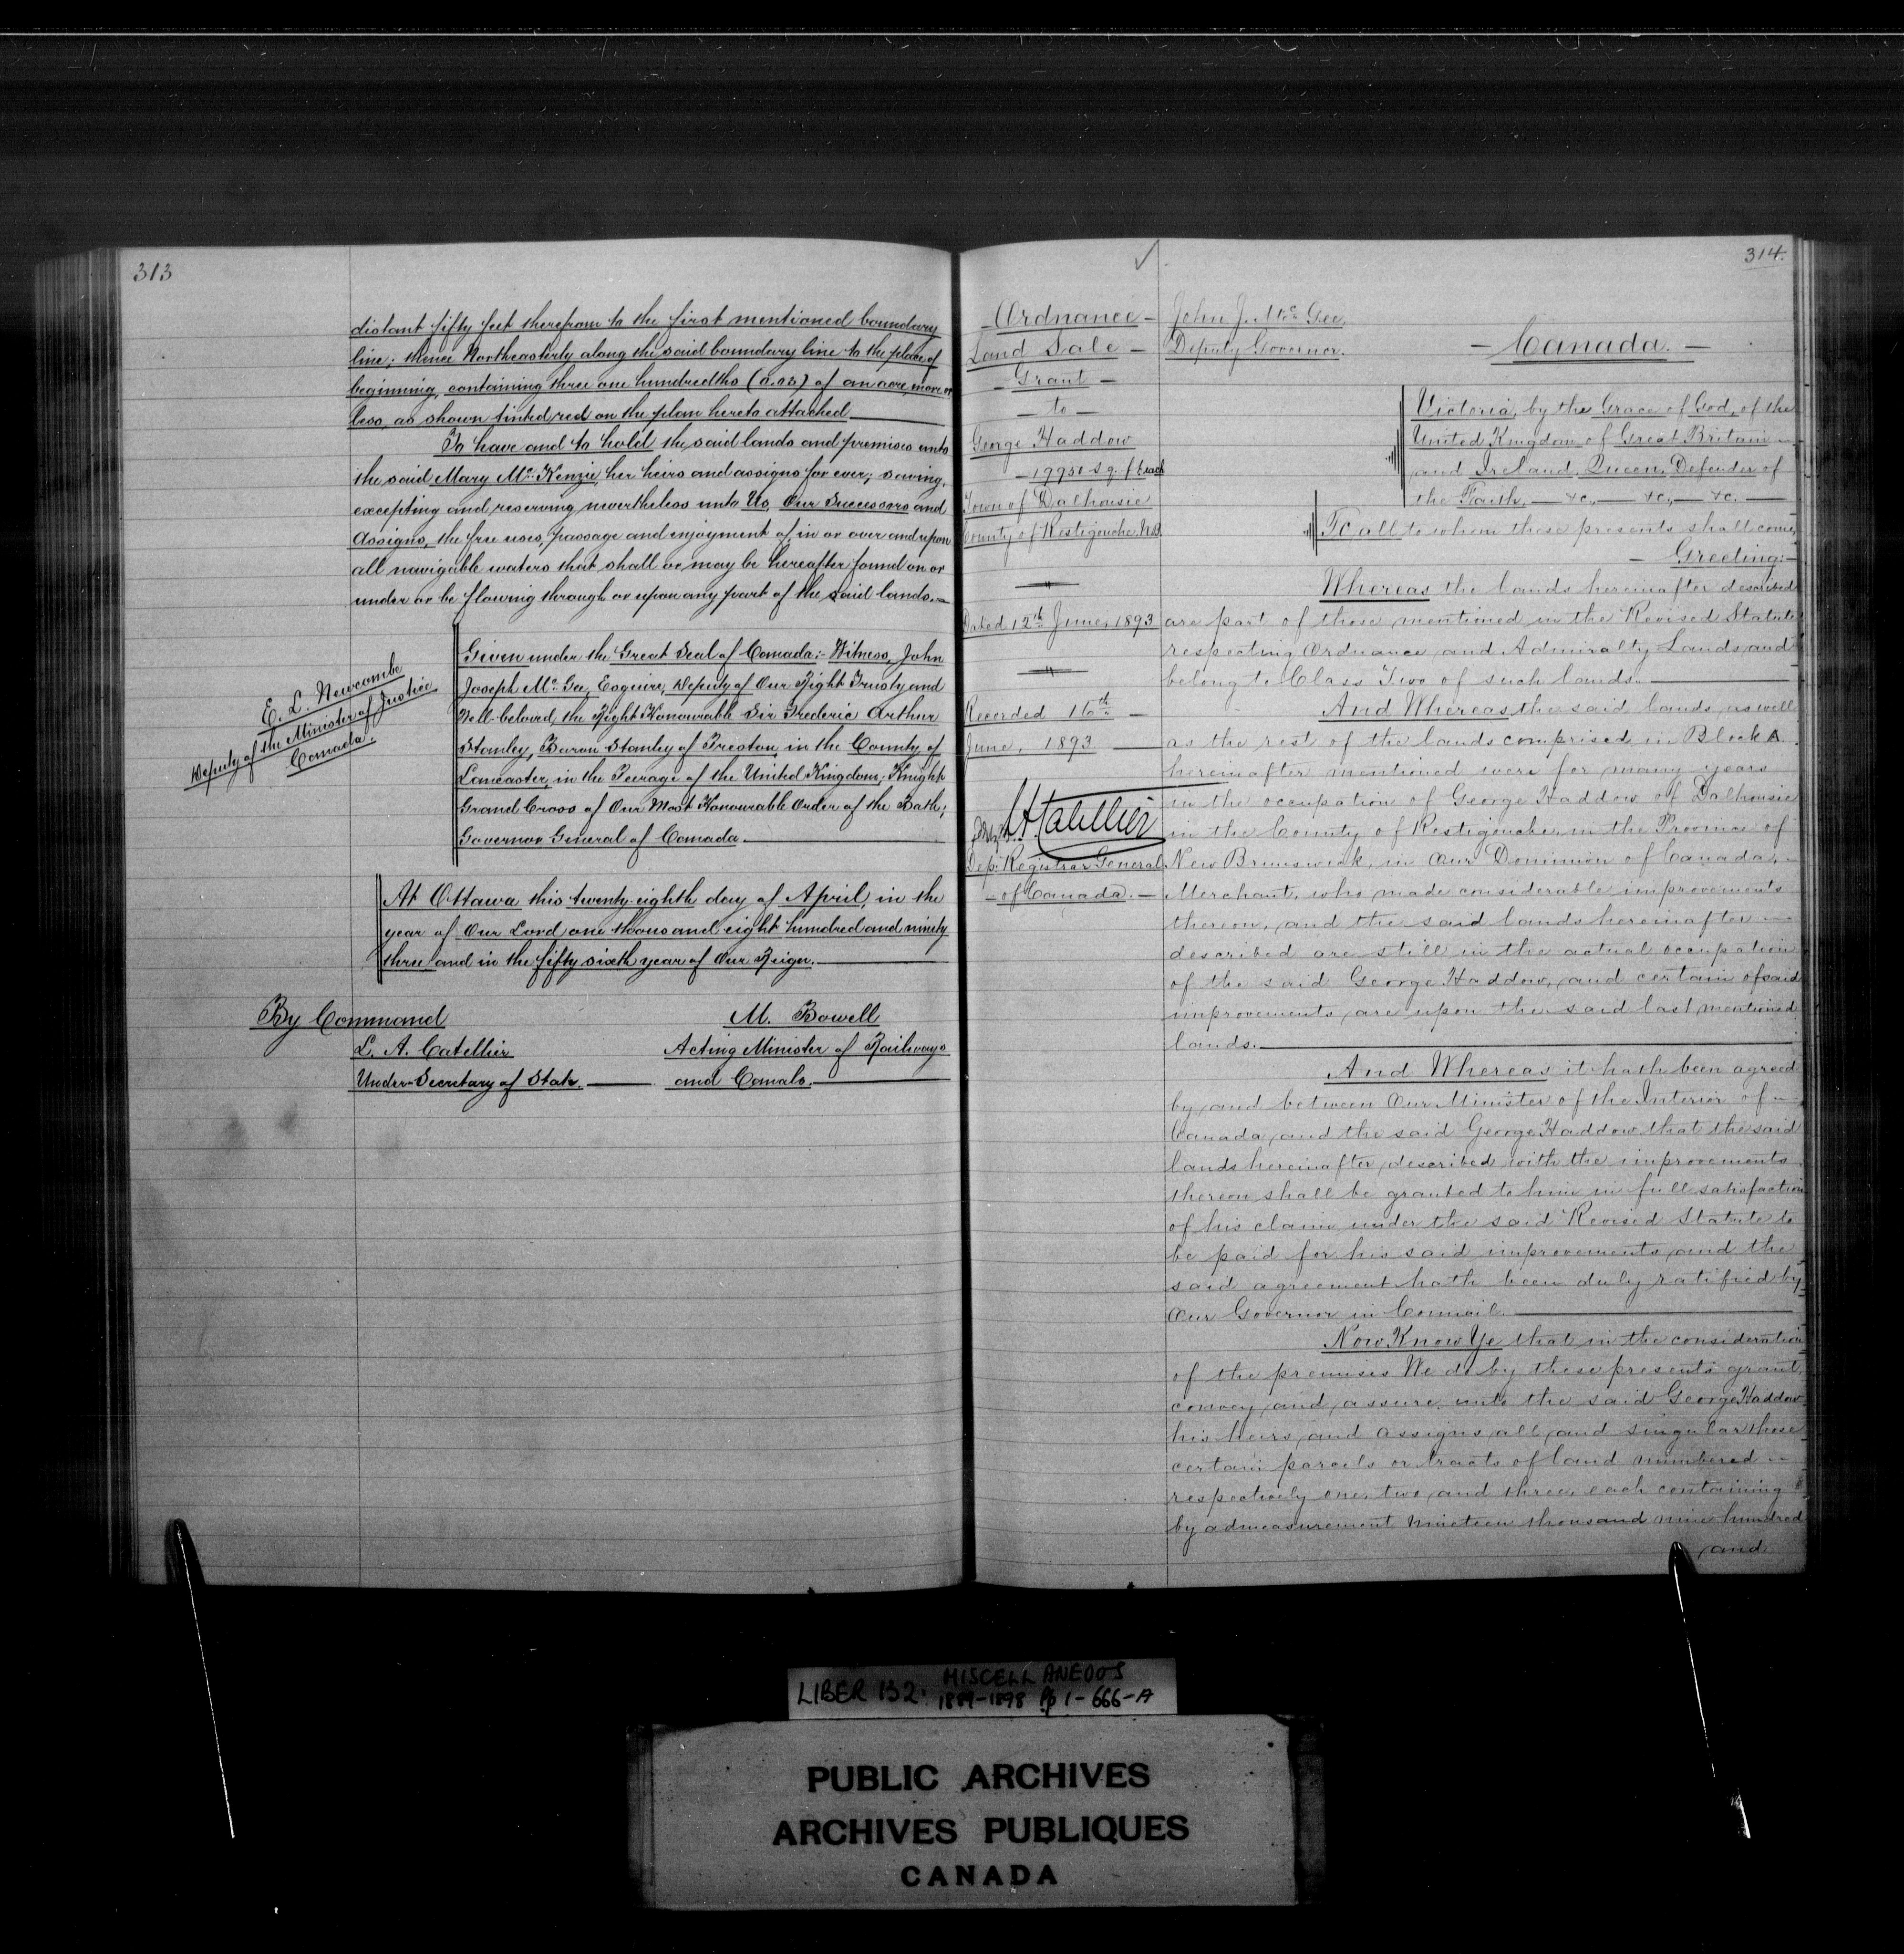 313
distant fifty feet therefrom to the first mentioned boundary
line; thence Northeasterly along the said boundary line to the place of
beginning, containing three one hundredths (0.03) of an acre, more or
less, as shown tinted red on the plan hereto attached
To have and to hold the said lands and premises unto
the said Mary Mc Kenzie, her heirs and assigns for ever; saving,
excepting and reserving nevertheless unto Us, Our Successors and
Assigns, the free uses, passage and enjoyment of in or over and upon
all navigable waters that shall or may be hereafter found on or
under or be flowing through or upon any part of the said lands.
E. L. Newcombe
Deputy of the Minister of Justice
Canada.
Given under the Great Seal of Canada:- Witness, John
Joseph Mc Gee, Esquire, Deputy of Our Right Trusty and
Well-beloved, the Right Honourable Sir Frederic Arthur
Stanley, Baron Stanley of Preston, in the County of
Lancaster, in the Peerage of the United Kingdom; Knight
Grand Cross of Our Most Honourable Order of the Bath;
Governor General of Canada.
At Ottawa this twenty-eighth day of April, in the
year of Our Lord one thousand eight hundred and ninety
three and in the fifty sixth year of Our Reign.
By Command
L. A. Catellier
Under-Secretary of State.
M. Bowell
Acting Minister of Railways
and Canals.
314.
Ordnance
Land Sale
Grant
to
George Haddow
19950 sq. ft each
Town of Dalhousie
County of Restigouche N.B.
Dated 12th June, 1893
Recorded 16th
June, 1893
LACatellier
Dep. Registrar General
of Canada.
John J. Mc Gee,
Deputy Governor.
Canada.
Victoria, by the Grace of God, of the
United Kingdom of Great Britain
and Ireland, Queen, Defender of
the Faith, &c., &c., &c.
To all to whom these presents shall come,
Greeting:
Whereas the lands hereinafter described
are part of those mentioned in the Revised Statute
respecting Ordnance and Admiralty Lands and
belong to Class Two of such lands.
And Whereas the said lands, as well
as the rest of the lands comprised in Block A.
hereinafter mentioned were for many years
in the occupation of George Haddow of Dalhousie
in the County of Restigouche, in the Province of
New Brunswick, in Our Dominion of Canada,
Merchant, who made considerable improvements
thereon, and the said lands hereinafter
described are still in the actual occupation
of the said George Haddow, and certain of said
improvements are upon the said last mentioned
lands.
And Whereas it hath been agreed
by and between Our Minister of the Interior of
Canada and the said George Haddow that the said
lands hereinafter described with the improvements
thereon shall be granted to him in full satisfaction
of his claim under the said Revised Statute to
be paid for his said improvements, and the
said agreement hath been duly ratified by
Our Governor in Council.
Now Know Ye that in the consideration
of the premises We do by these presents grant,
convey and assure unto the said George Haddow
his heirs and assigns all and singular those
certain parcels or tracts of land numbered
respectively one, two and three, each containing
by admeasurement nineteen thousand nine hundred
and
LIBER 132. MISCELLANEOUS
1889-1898 Pp 1-666-A
PUBLIC ARCHIVES
ARCHIVES PUBLIQUES
CANADA